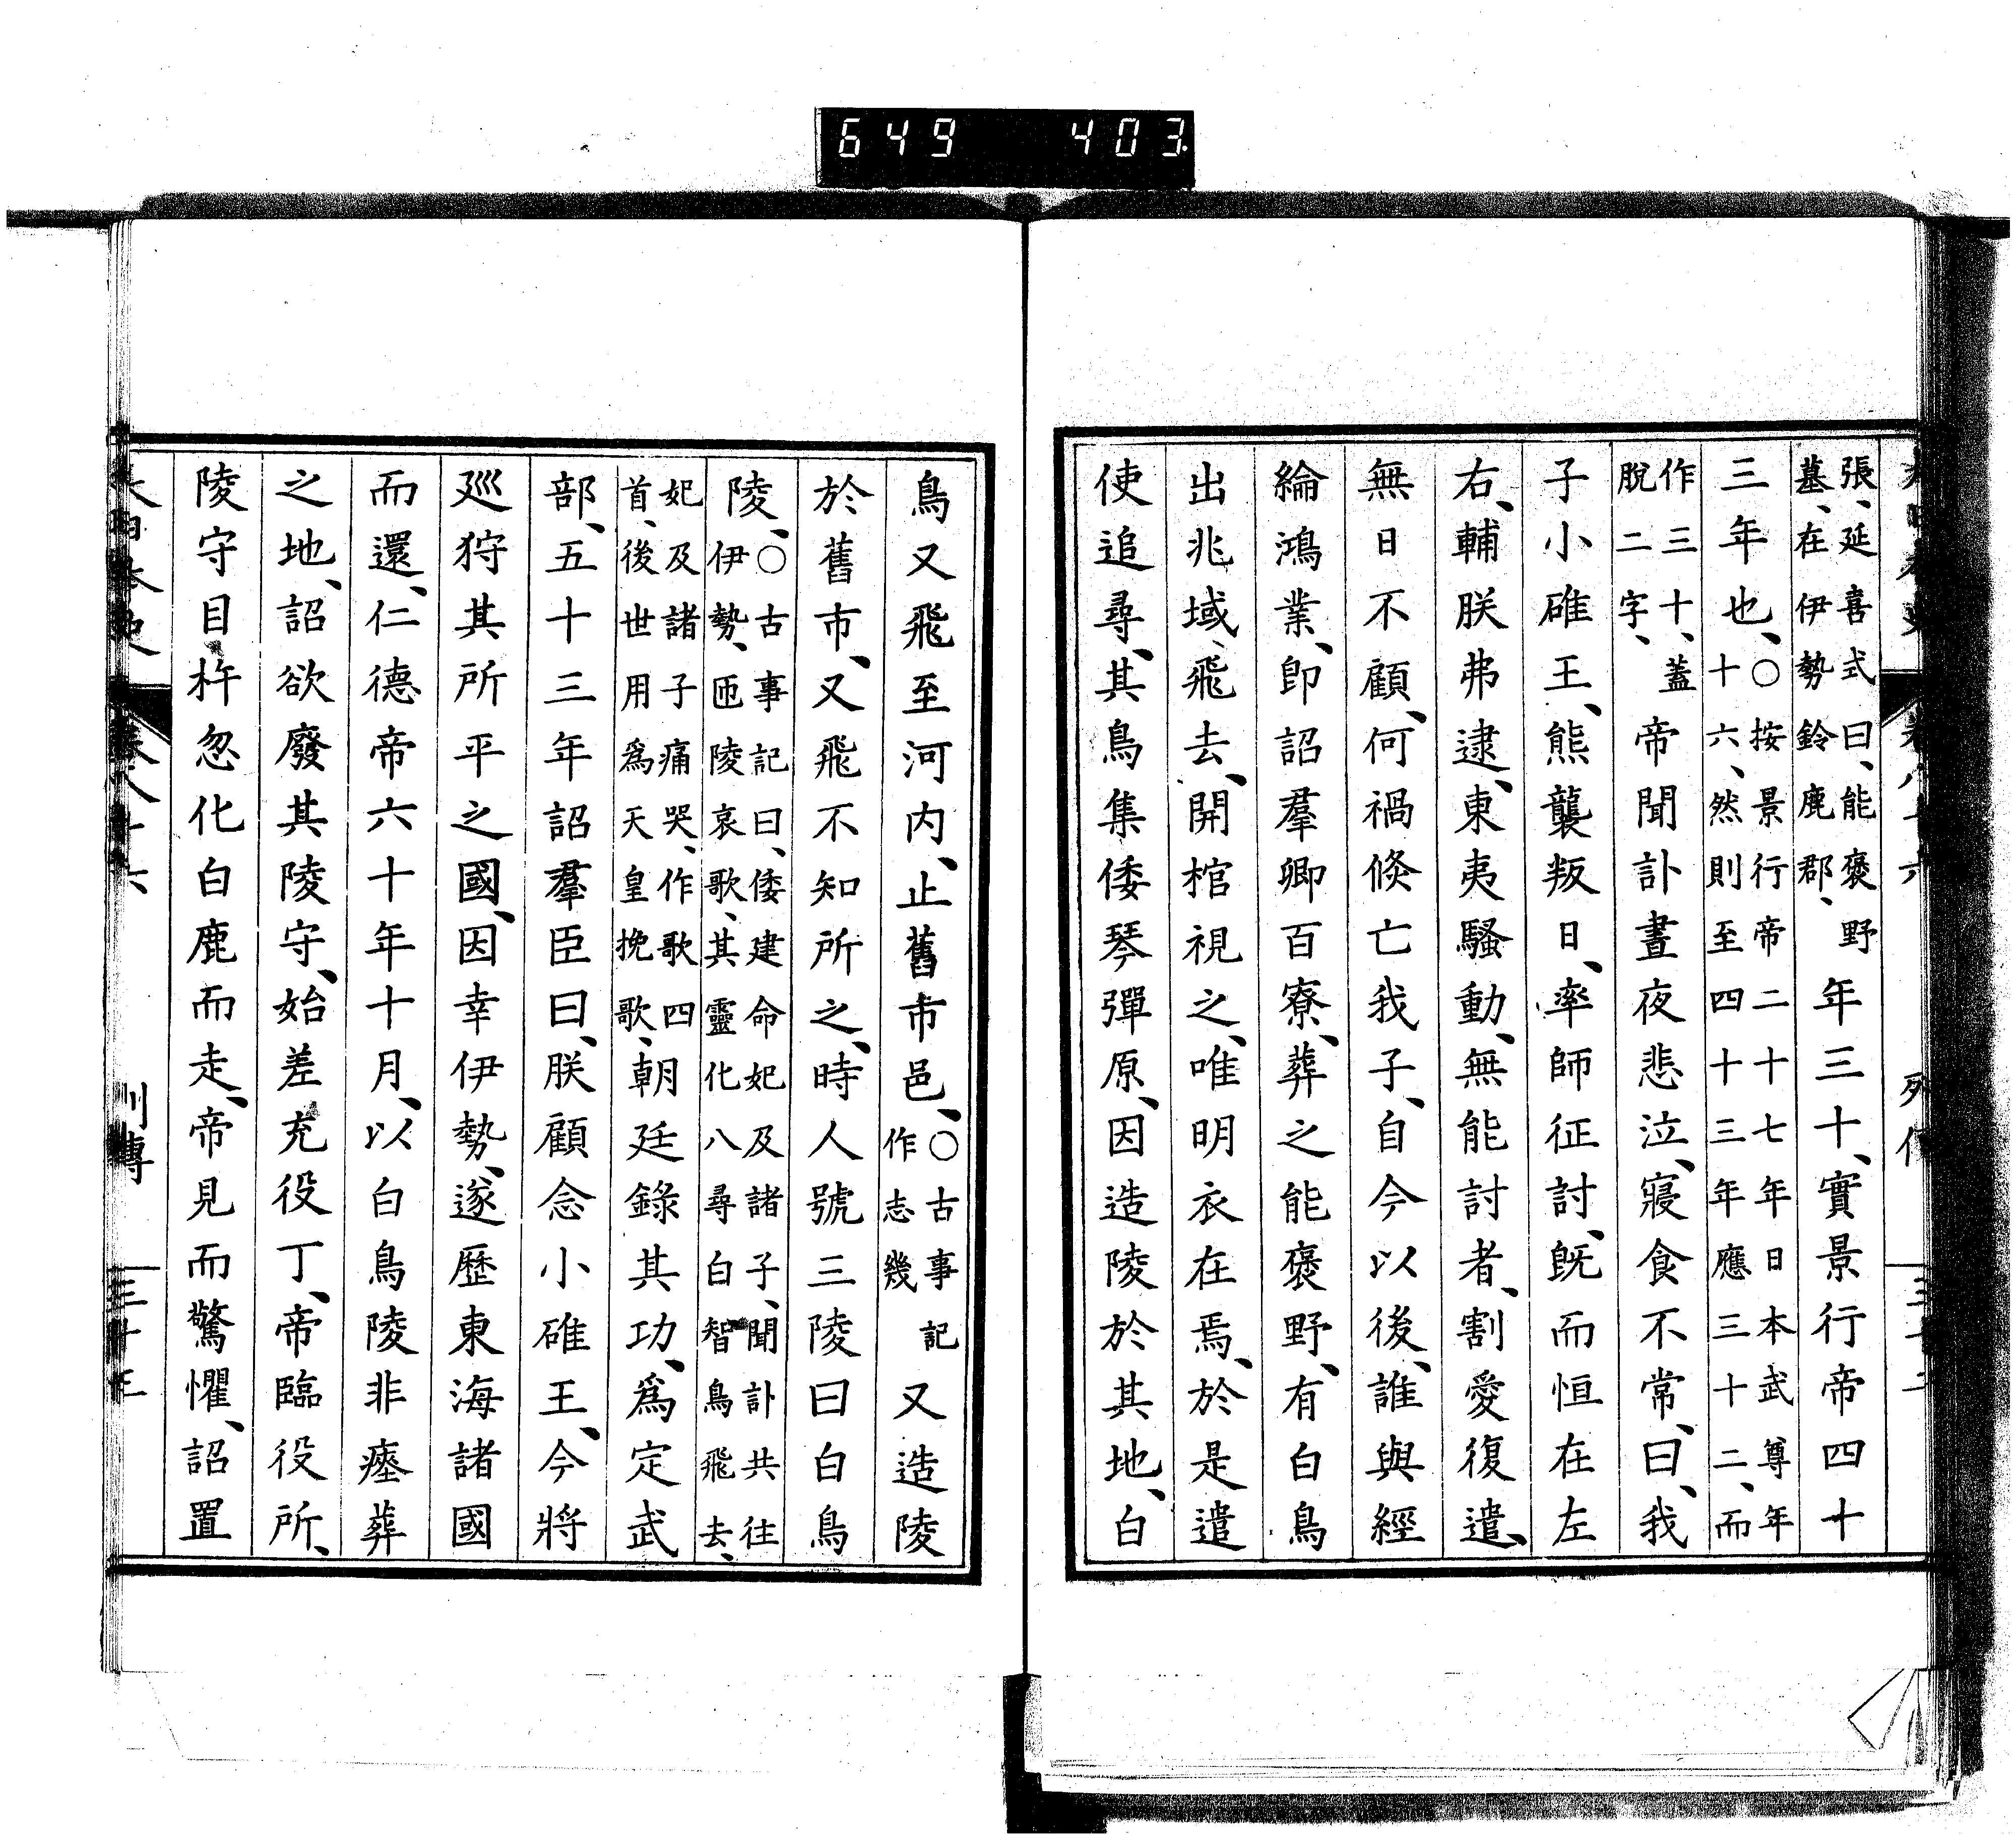 649 403
張、延喜式曰、能褒野
墓、在伊勢鈴鹿郡、年三十、實景行帝四十
三年也、○按景行帝二十七年日本武尊年
十六、然則至四十三年應三十二、而
作三十、蓋
脫二字、帝聞訃晝夜悲泣、寢食不常、曰、我
子小碓王、熊襲叛日、率師征討、既而恒在左
右、輔朕弗逮、東夷騷動、無能討者、割愛復遣、
無日不顧、何禍倐亡我子、自今以後、誰與經
綸鴻業、卽詔羣卿百寮、葬之能褒野、有白鳥
出兆域、飛去、開棺視之、唯明衣在焉、於是遣
使追尋、其鳥集倭琴彈原、因造陵於其地、白
鳥又飛至河内、止舊市邑、○古事記
作志幾又造陵
於舊市、又飛不知所之、時人號三陵曰白鳥
陵、○古事記曰、倭建命妃及諸子、聞訃共往
伊勢、匝陵哀歌、其靈化八尋白智鳥飛去、
妃及諸子痛哭、作歌四
首、後世用爲天皇挽歌、朝廷錄其功、爲定武
部、五十三年詔羣臣曰、朕顧念小碓王、今將
巡狩其所平之國、因幸伊勢、遂歷東海諸國
而還、仁德帝六十年十月、以白鳥陵非瘞葬
之地、詔欲廢其陵守、始差充役丁、帝臨役所、
陵守目杵忽化白鹿而走、帝見而驚懼、詔置